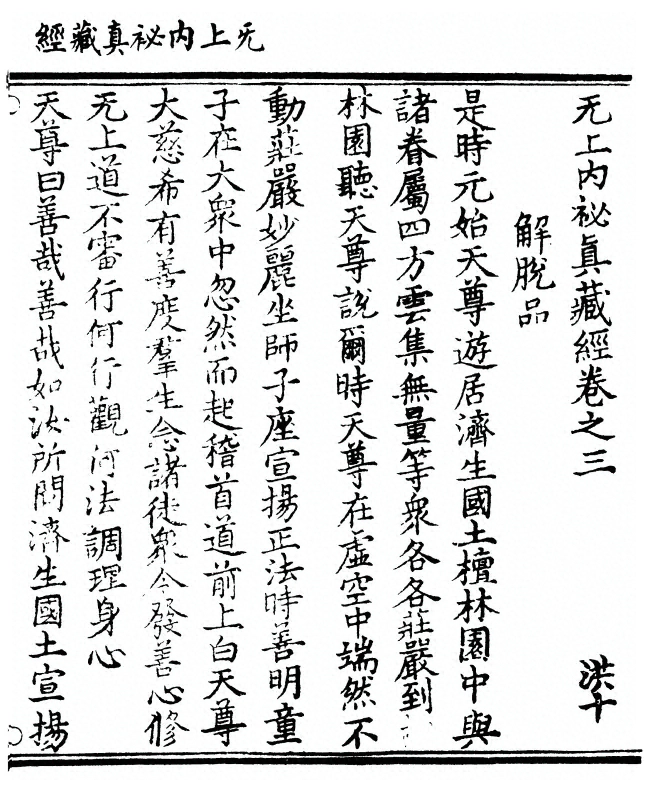 无上内祕真藏經
无上内祕真藏經卷之三 洪十
解脫品
是時元始天尊遊居濟生國土檀林園中與
諸眷屬四方雲集無量等衆各各莊嚴到
林園聽天尊說爾時天尊在虛空中端然不
動莊嚴妙麗坐師子座宣揚正法時善明童
子在大衆中忽然而起稽首道前上白天尊
大慈希有善度羣生念諸徒衆令發善心修
无上道不審行何行觀何法調理身心
天尊曰善哉善哉如汝所問濟生國土宣揚